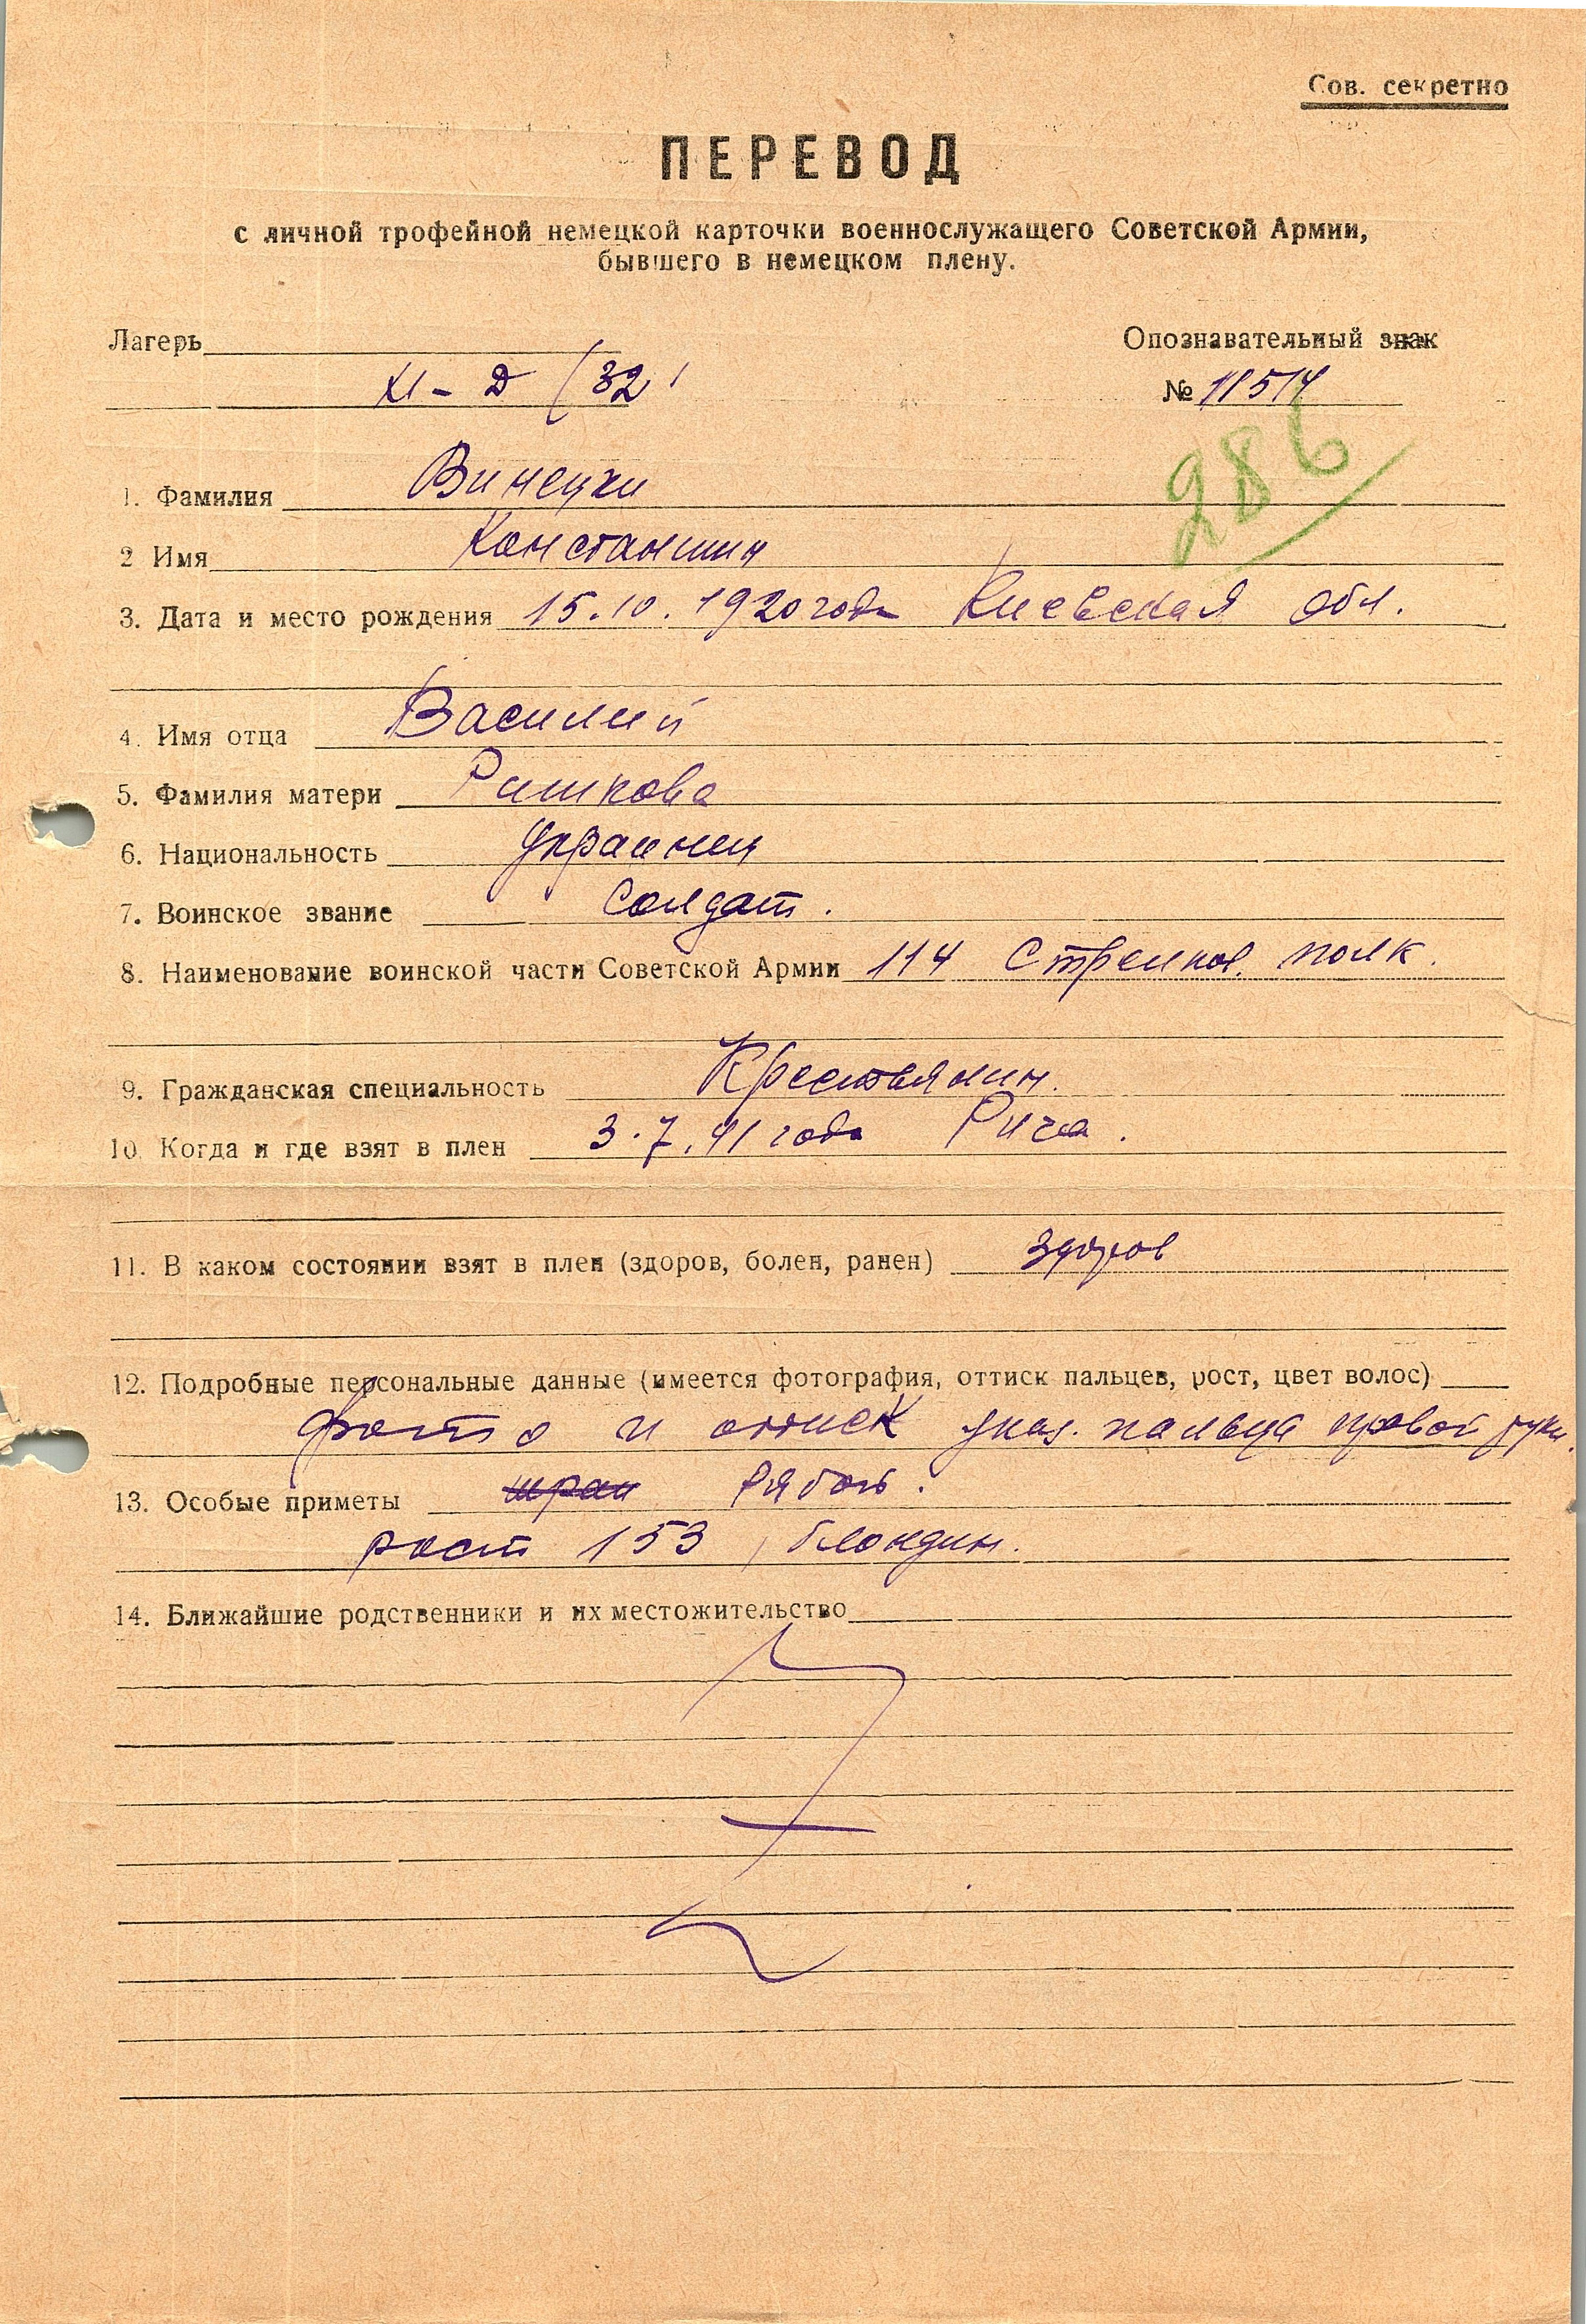 Сов. секретно
ПЕРЕВОД
с личной трофейной немецкой карточки военнослужащего Советской Армии,
бывшего в немецком плену.
Лагерь
Опознавательный знак
XI - Д (321
№ 11514
286
1. Фамилия Винецки
2 Имя Константин
3. Дата и место рождения 15.10.1920 года Киевская обл.
4. Имя отца Василий
5. Фамилия матери Ришкова
6. Национальность Украинец
7. Воинское звание Солдат.
8. Наименование воинской части Советской Армии 114 Стрелков. полк.
9. Гражданская специальность Крестьянин.
10. Когда и где взят в плен 3.7.41 года Рига.
11. В каком состоянии взят в плен (здоров, болен, ранен) здоров
12. Подробные персональные данные (имеется фотография, оттиск пальцев, рост, цвет волос)
фото и оттиск указ. пальца правой руки.
13. Особые приметы Рябой.
рост 153, блондин.
14. Ближайшие родственники и их местожительство